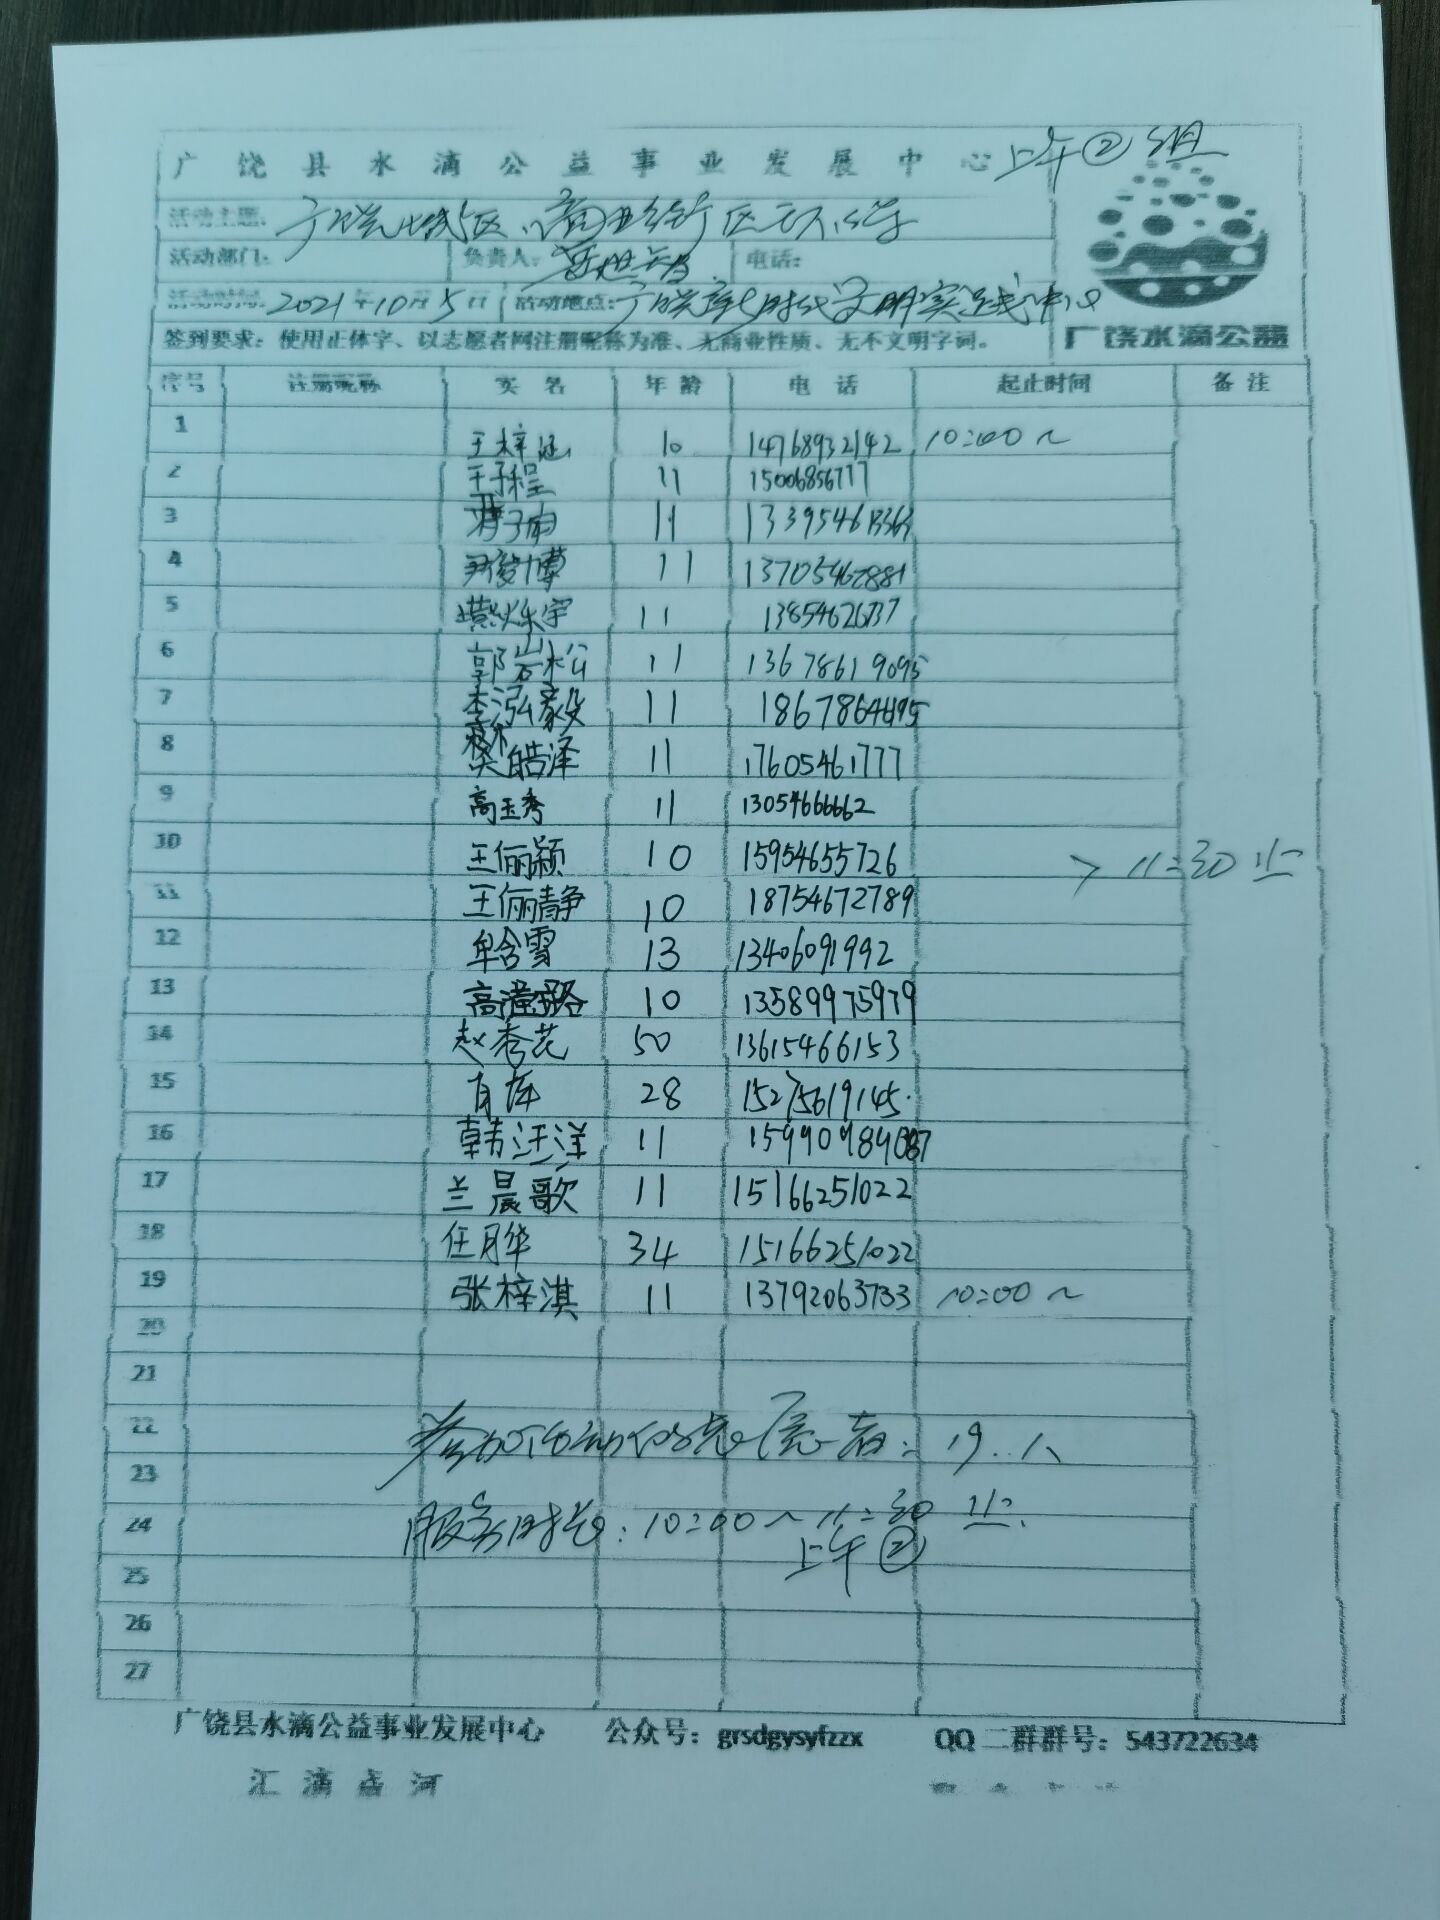 广饶县水滴公益事业发展中心 上午②组
活动主题:
活动部门: 负责人: 电话:
活动时间: 2021年10月5日 活动地点:
签到要求: 使用正体字、以志愿者网注册昵称为准、无商业性质、无不文明字词。
广饶水滴公益
序号 注册昵称 实名 年龄 电话 起止时间 备注
1 王梓涵 10 14768932142 10:00~
2 王子程 11 15006856777
3 11
4 尹俊博 11 13705467881
5 11 13854626737
6 郭岩松 11 13678619095
7 李泓毅 11
8 樊皓泽 11 17605461777
9 高玉秀 11 13054666662
10 王俪颖 10 15954655726
> 11:30止
11 王俪静 10 18754672789
12 牟含雪 13 13406091992
13 高潼璐 10 13589975979
14 赵秀花 50 13615466153
15 28 15275619145
16 韩汪洋 11
17 兰晨歌 11 15166251022
18 任月华 34 15166251022
19 张梓淇 11 13792063733 10:00~
20
21
22 参加活动的志愿者: 19人
23
24 服务时长: 10:00~11:30止.
上午②
25
26
27
广饶县水滴公益事业发展中心 公众号: grsdgysyfzzx QQ二群群号: 543722634
汇滴成河